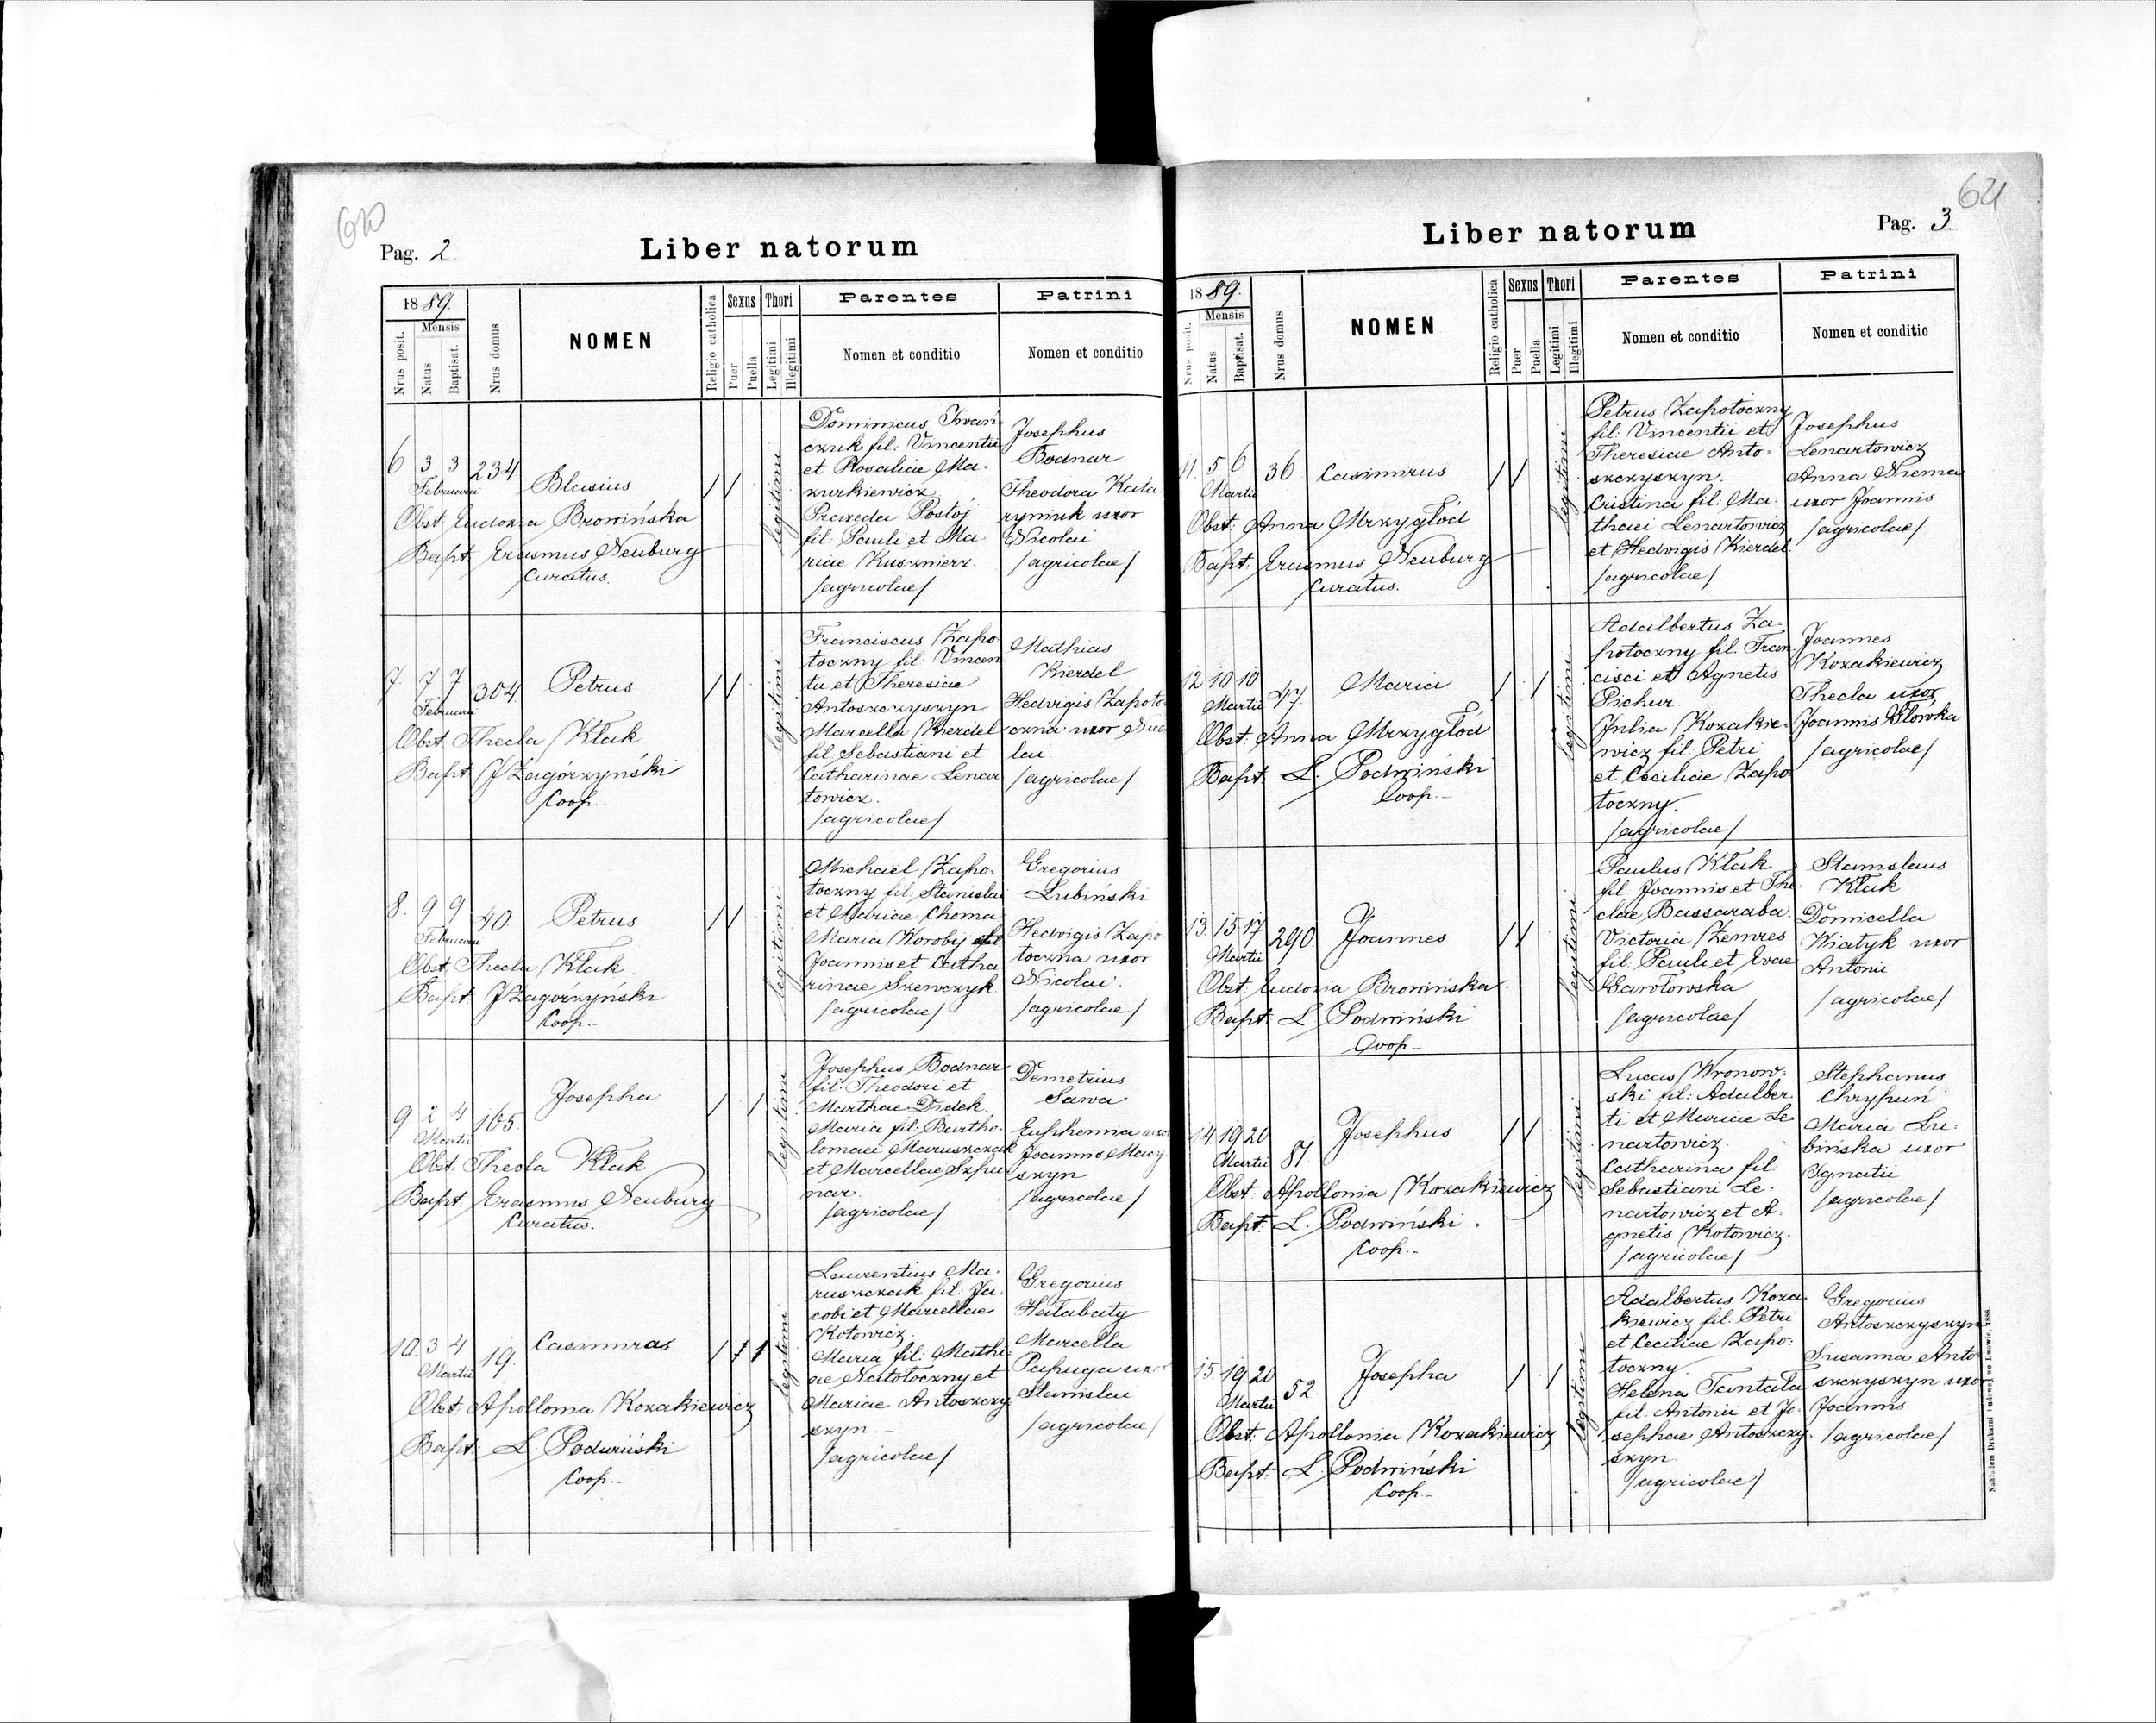 620
Pag. 2
Liber natorum
1889.
Nrus posit.
Mensis
Natus
Baptisat.
Nrus domus
NOMEN
Religio catholica
Sexus
Puer
Puella
Thori
Legitimi
Illegitimi
Parentes
Nomen et conditio
Patrini
Nomen et conditio
6 3 3 234 Blasius
Februarii
Obst. Eudoxia Browińska
Bapt. Erasmus Neuburg
Curatus.
legitimi
Dominicus Iwań
czuk fil: Vincentii
et Rosaliae Ma-
zurkiewicz
Praxeda Postój
fil: Pauli et Ma-
riae Kusznierz.
/agricolae/
Josephus
Bodnar
Theodora Kata
ryniuk uxor
Nicolai
/agricolae/
7 7 7 304 Petrus
Februarii
Obst. Thecla Kłak
Bapt. J Zagórzyński
Coop.
legitimi
Franciscus Zapo
toczny fil: Vincen
tii et Theresiae
Antoszczyszyn
Marcella Kierdel
fil Sebastiani et
Catharinae Lenar
towicz.
/agricolae/
Mathias
Kierdel
Hedvigis Zapoto
czna uxor Nico
lai.
/agricolae/
8. 9 9 40 Petrus
Februarii
Obst. Thecla Kłak.
Bapt. J Zagórzyński
Coop.
legitimi
Michaël Zapo-
toczny fil. Stanislai
et Mariae Choma
Maria Worobij fil
Joannis et Catha
rinae Szewczyk
/agricolae/
Gregorius
Lubiński
Hedvigis Zapo
toczna uxor
Nicolai.
/agricolae/
9. 2 4 165. Josepha
Martii
Obst. Thecla Kłak
Bapt. Erasmus Neuburg
Curatus.
legitimi
Josephus Bodnar
fil: Theodori et
Marthae Didek.
Maria fil: Bartho-
lomaei Maruszczak
et Marcellae Szpu-
nar.
/agricolae/
Demetrius
Sawa
Euphemia uxor
Joannis Macy
szyn
/agricolae/
10. 3 4 19. Casimiras
Martii
Obst. Apollonia Kozakiewicz
Bapt. L. Podwiński
Coop.
legitimi
Laurentius Ma-
ruszczak fil: Ja-
cobi et Marcellae
Kotowicz.
Maria fil: Mathi-
ae Natotoczny et
Mariae Antoszczy
szyn.
/agricolae/
Gregorius
Hałabaty
Marcella
Papuga uxor
Stanislai
/agricolae/
621
Liber natorum
Pag. 3.
1889.
Nrus posit.
Mensis
Natus
Baptisat.
Nrus domus
NOMEN
Religio catholica
Sexus
Puer
Puella
Thori
Legitimi
Illegitimi
Parentes
Nomen et conditio
Patrini
Nomen et conditio
11. 5 6 36 Casimirus
Martii
Obst: Anna Mrzygłód
Bapt: Erasmus Neuburg
Curatus.
legitimi
Petrus Zapotoczny
fil: Vincentii et
Theresiae Anto-
szczyszyn.
Cristina fil: Ma-
thaei Lenartowicz
et Hedvigis Kierdel.
/agricolae/
Josephus
Lenartowicz
Anna Niema
uxor Joannis
/agricolae/
12 10 10 47. Maria
Martii
Obst: Anna Mrzygłód
Bapt. L. Podwiński
Coop.
legitimi
Adalbertus Za-
potoczny fil: Fran
cisci et Agnetis
Pichur.
Julia Kozakie-
wicz fil: Petri
et Ceciliae Zapo
toczny.
/agricolae/
Joannes
Kozakiewicz
Thecla uxor
Joannis Główka
/agricolae/
13. 15 17 290 Joannes
Martii
Obst. Eudoxia Browińska.
Bapt. L. Podwiński
Coop.
legitimi
Paulus Kłak
fil. Joannis et The
clae Bassaraba.
Victoria Zemres
fil: Pauli et Evae
Gawłowska.
/agricolae/
Stanislaus
Kłak
Domicella
Kiatyk uxor
Antonii
/agricolae/
14. 19 20 81. Josephus
Martii
Obst. Apollonia Kozakiewicz
Bapt. L. Podwiński.
Coop.
legitimi
Lucas Wronow-
ski fil: Adalber-
ti et Mariae Le-
nartowicz.
Catharina fil
Sebastiani Le-
nartowicz et A-
gnetis Kotowicz.
/agricolae/
Stephanus
Chrypuń
Maria Lu-
bińska uxor
Ignatii
/agricolae/
15. 19. 20 52. Josepha
Martii
Obst. Apollonia Kozakiewicz
Bapt. L. Podwiński
Coop.
legitimi
Adalbertus Koza-
kiewicz fil: Petri
et Ceciliae Zapo-
toczny
Helena Tantala
fil: Antonii et Jo-
sephae Antoszczy-
szyn
/agricolae/
Gregorius
Antoszczyszyn
Susanna Anto
szczyszyn uxor
Joannis
/agricolae/
Nakładem Drukarni ludowej we Lwowie, 1888.